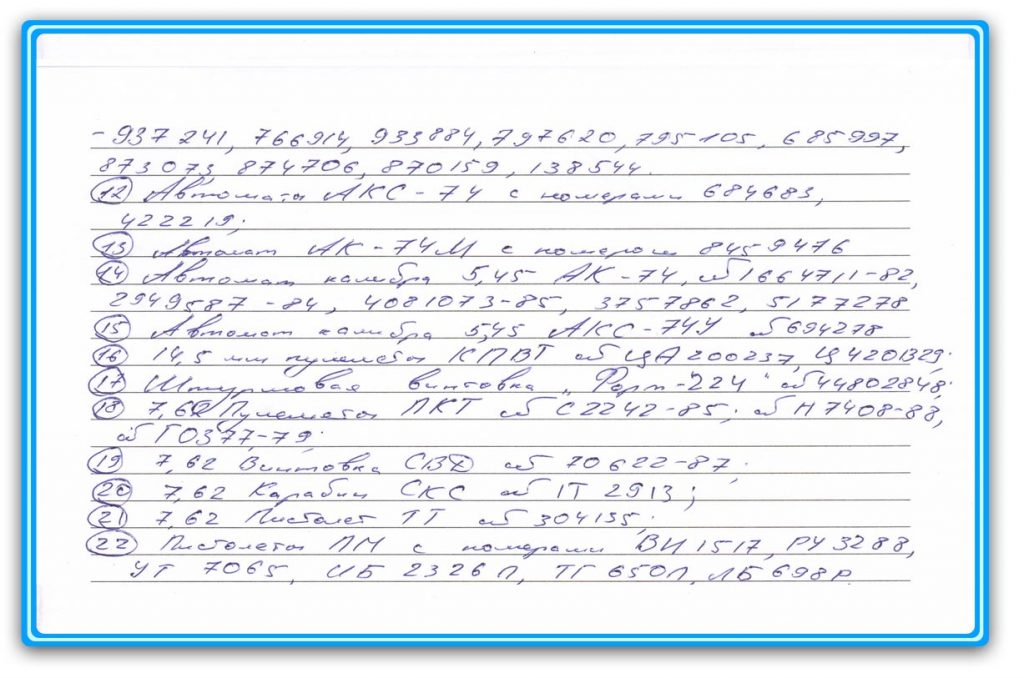 - 937241, 766914, 933884, 797620, 795105, 685997,
873073, 874706, 870159, 138544.
12 Автоматы АКС-74 с номерами 684683,
422219;
13 Автомат АК-74М с номером 8459476
14 Автомат калибра 5,45 АК-74, № 1664711-82,
2949587-84, 4081073-85, 3757862, 5177278
15 Автомат калибра 5,45 АКС-74У № 694278
16 14,5 мм пулеметы КПВТ № ЦА200237, Ц420В29;
17 Штурмовая винтовка „Форт-224" № 44802848;
18 7,62 Пулеметы ПКТ № С2242-85; № Н7408-88,
№ ГО377-79;
19 7,62 Винтовка СВД № 70622-87;
20 7,62 Карабин СКС № IT 2913;
21 7,62 Пистолет ТТ № 304135;
22 Пистолеты ПМ с номерами ВИ1517, РУ3288,
УГ 7065, ИБ 2326Л, ТГ 650Л, ЛБ 698Р.